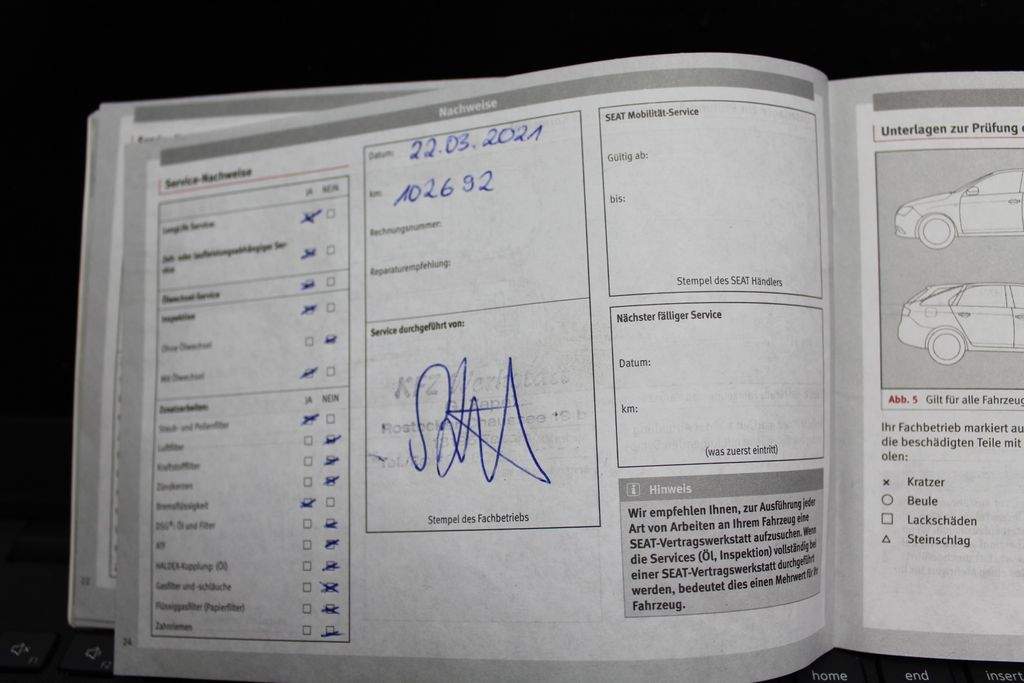 Nachweise
Service-Nachweise
JA NEIN
LongLife Service
Zeit- oder laufleistungsabhängiger Ser-
vice
Ölwechsel-Service
Inspektion
Ohne Ölwechsel
Mit Ölwechsel
Zusatzarbeiten: JA NEIN
Staub- und Pollenfilter
Luftfilter
Kraftstofffilter
Zündkerzen
Bremsflüssigkeit
DSG®: Öl und Filter
ATF
HALDEX-Kupplung (Öl)
Gasfilter und -schläuche
Flüssiggasfilter (Papierfilter)
Zahnriemen
24
Datum: 22.03.2021
km: 102692
Rechnungsnummer:
Reparaturempfehlung:
Service durchgeführt von:
KFZ Werkstatt
Stempel des Fachbetriebs
SEAT Mobilität-Service
Gültig ab:
bis:
Stempel des SEAT Händlers
Nächster fälliger Service
Datum:
km:
(was zuerst eintritt)
i Hinweis
Wir empfehlen Ihnen, zur Ausführung jeder
Art von Arbeiten an Ihrem Fahrzeug eine
SEAT-Vertragswerkstatt aufzusuchen. Wenn
die Services (Öl, Inspektion) vollständig bei
einer SEAT-Vertragswerkstatt durchgeführt
werden, bedeutet dies einen Mehrwert für Ihr
Fahrzeug.
Unterlagen zur Prüfung
Abb. 5 Gilt für alle Fahrzeug
Ihr Fachbetrieb markiert au
die beschädigten Teile mit
olen:
Kratzer
Beule
Lackschäden
Steinschlag
F1
F2
home
end
insert